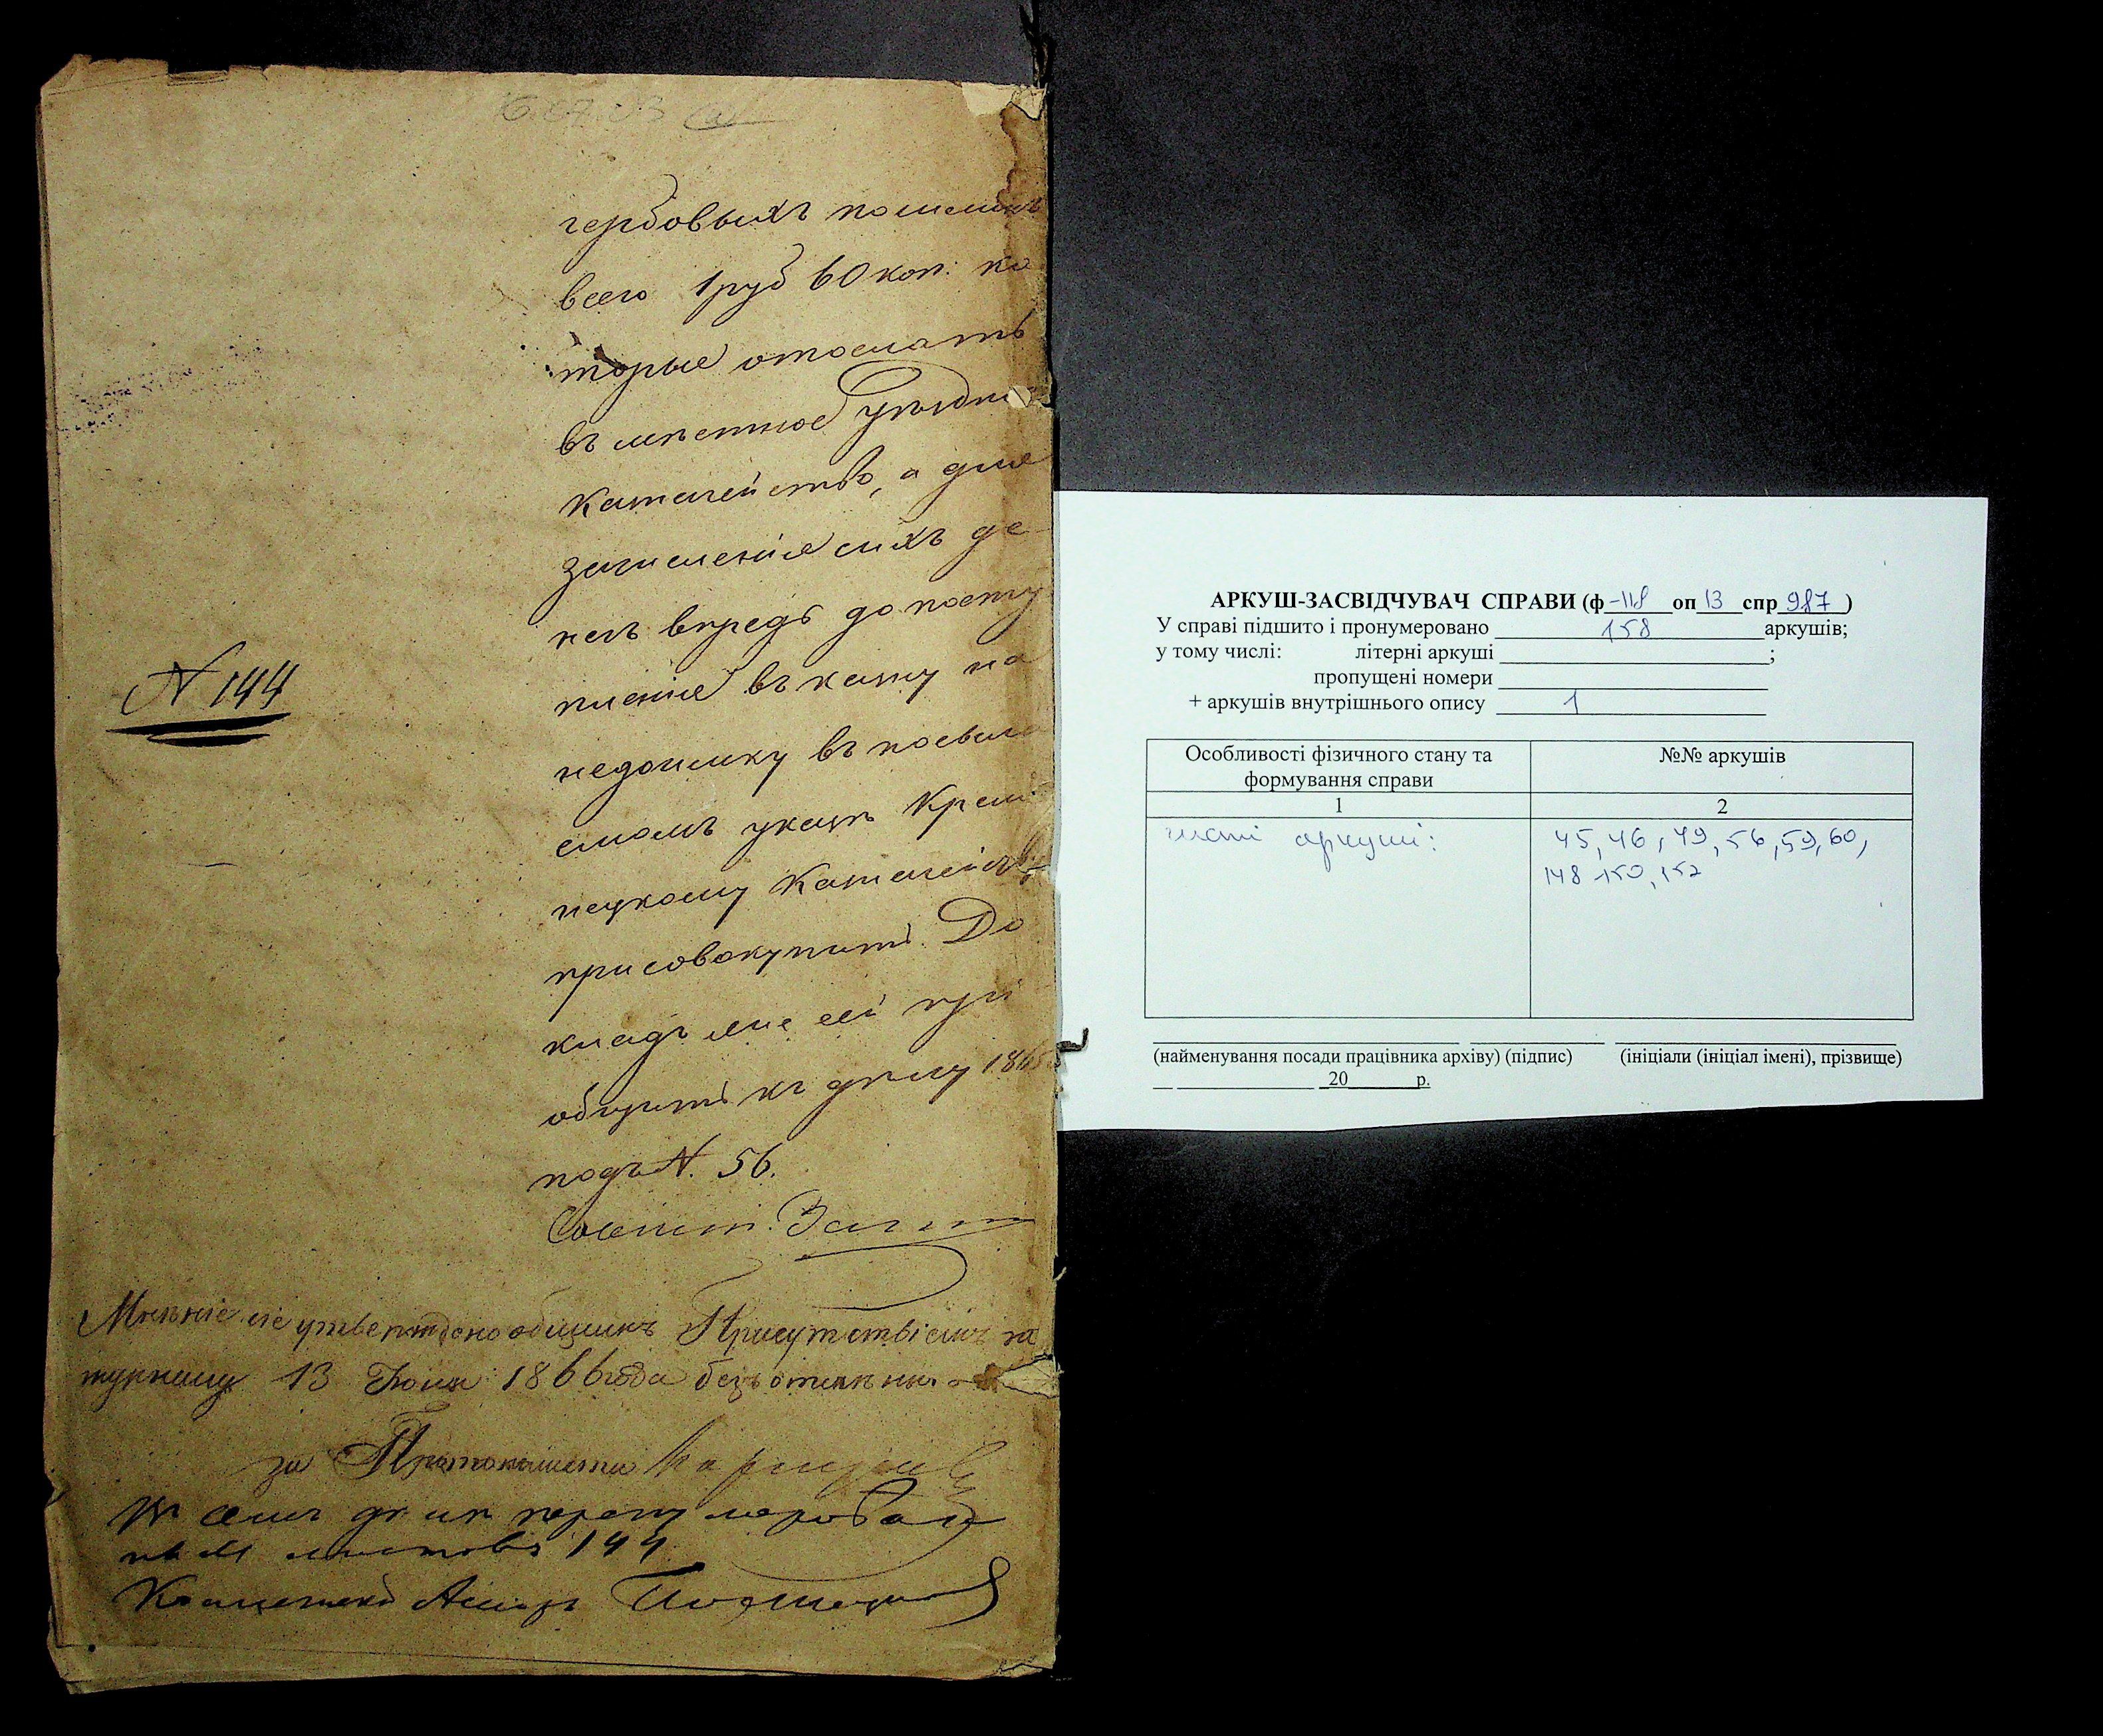 гербовыхъ пошлинъ
всего 1 руб 60 коп: ко
торые отослать
въ мѣстное Уѣздн
Казначейство, а для
зачисленія сихъ де
негъ впредь до посту
пленія въ казну на
недоимку въ посыла
емомъ указѣ Креме
нецкому Казначейству
присовокупить. До
кладъ же сей прі
общить къ дѣлу 186
подъ N. 56.
N 144
Мнѣніе сіе утверждено общимъ Присутствіемъ за
13 Іюня 1866 года безъ отмѣны
за Протоколиста
въ семъ дѣлѣ перенумерова
листовъ 144
АРКУШ-ЗАСВІДЧУВАЧ СПРАВИ (ф -118 оп 13 спр 987 )
У справі підшито і пронумеровано 158 аркушів;
у тому числі: літерні аркуші ;
пропущені номери
+ аркушів внутрішнього опису 1
Особливості фізичного стану та формування справи
№№ аркушів
1 2
чисті аркуші: 45, 46, 49, 56, 59, 60,
148-150, 152
(найменування посади працівника архіву) (підпис) (ініціали (ініціал імені), прізвище)
20 р.